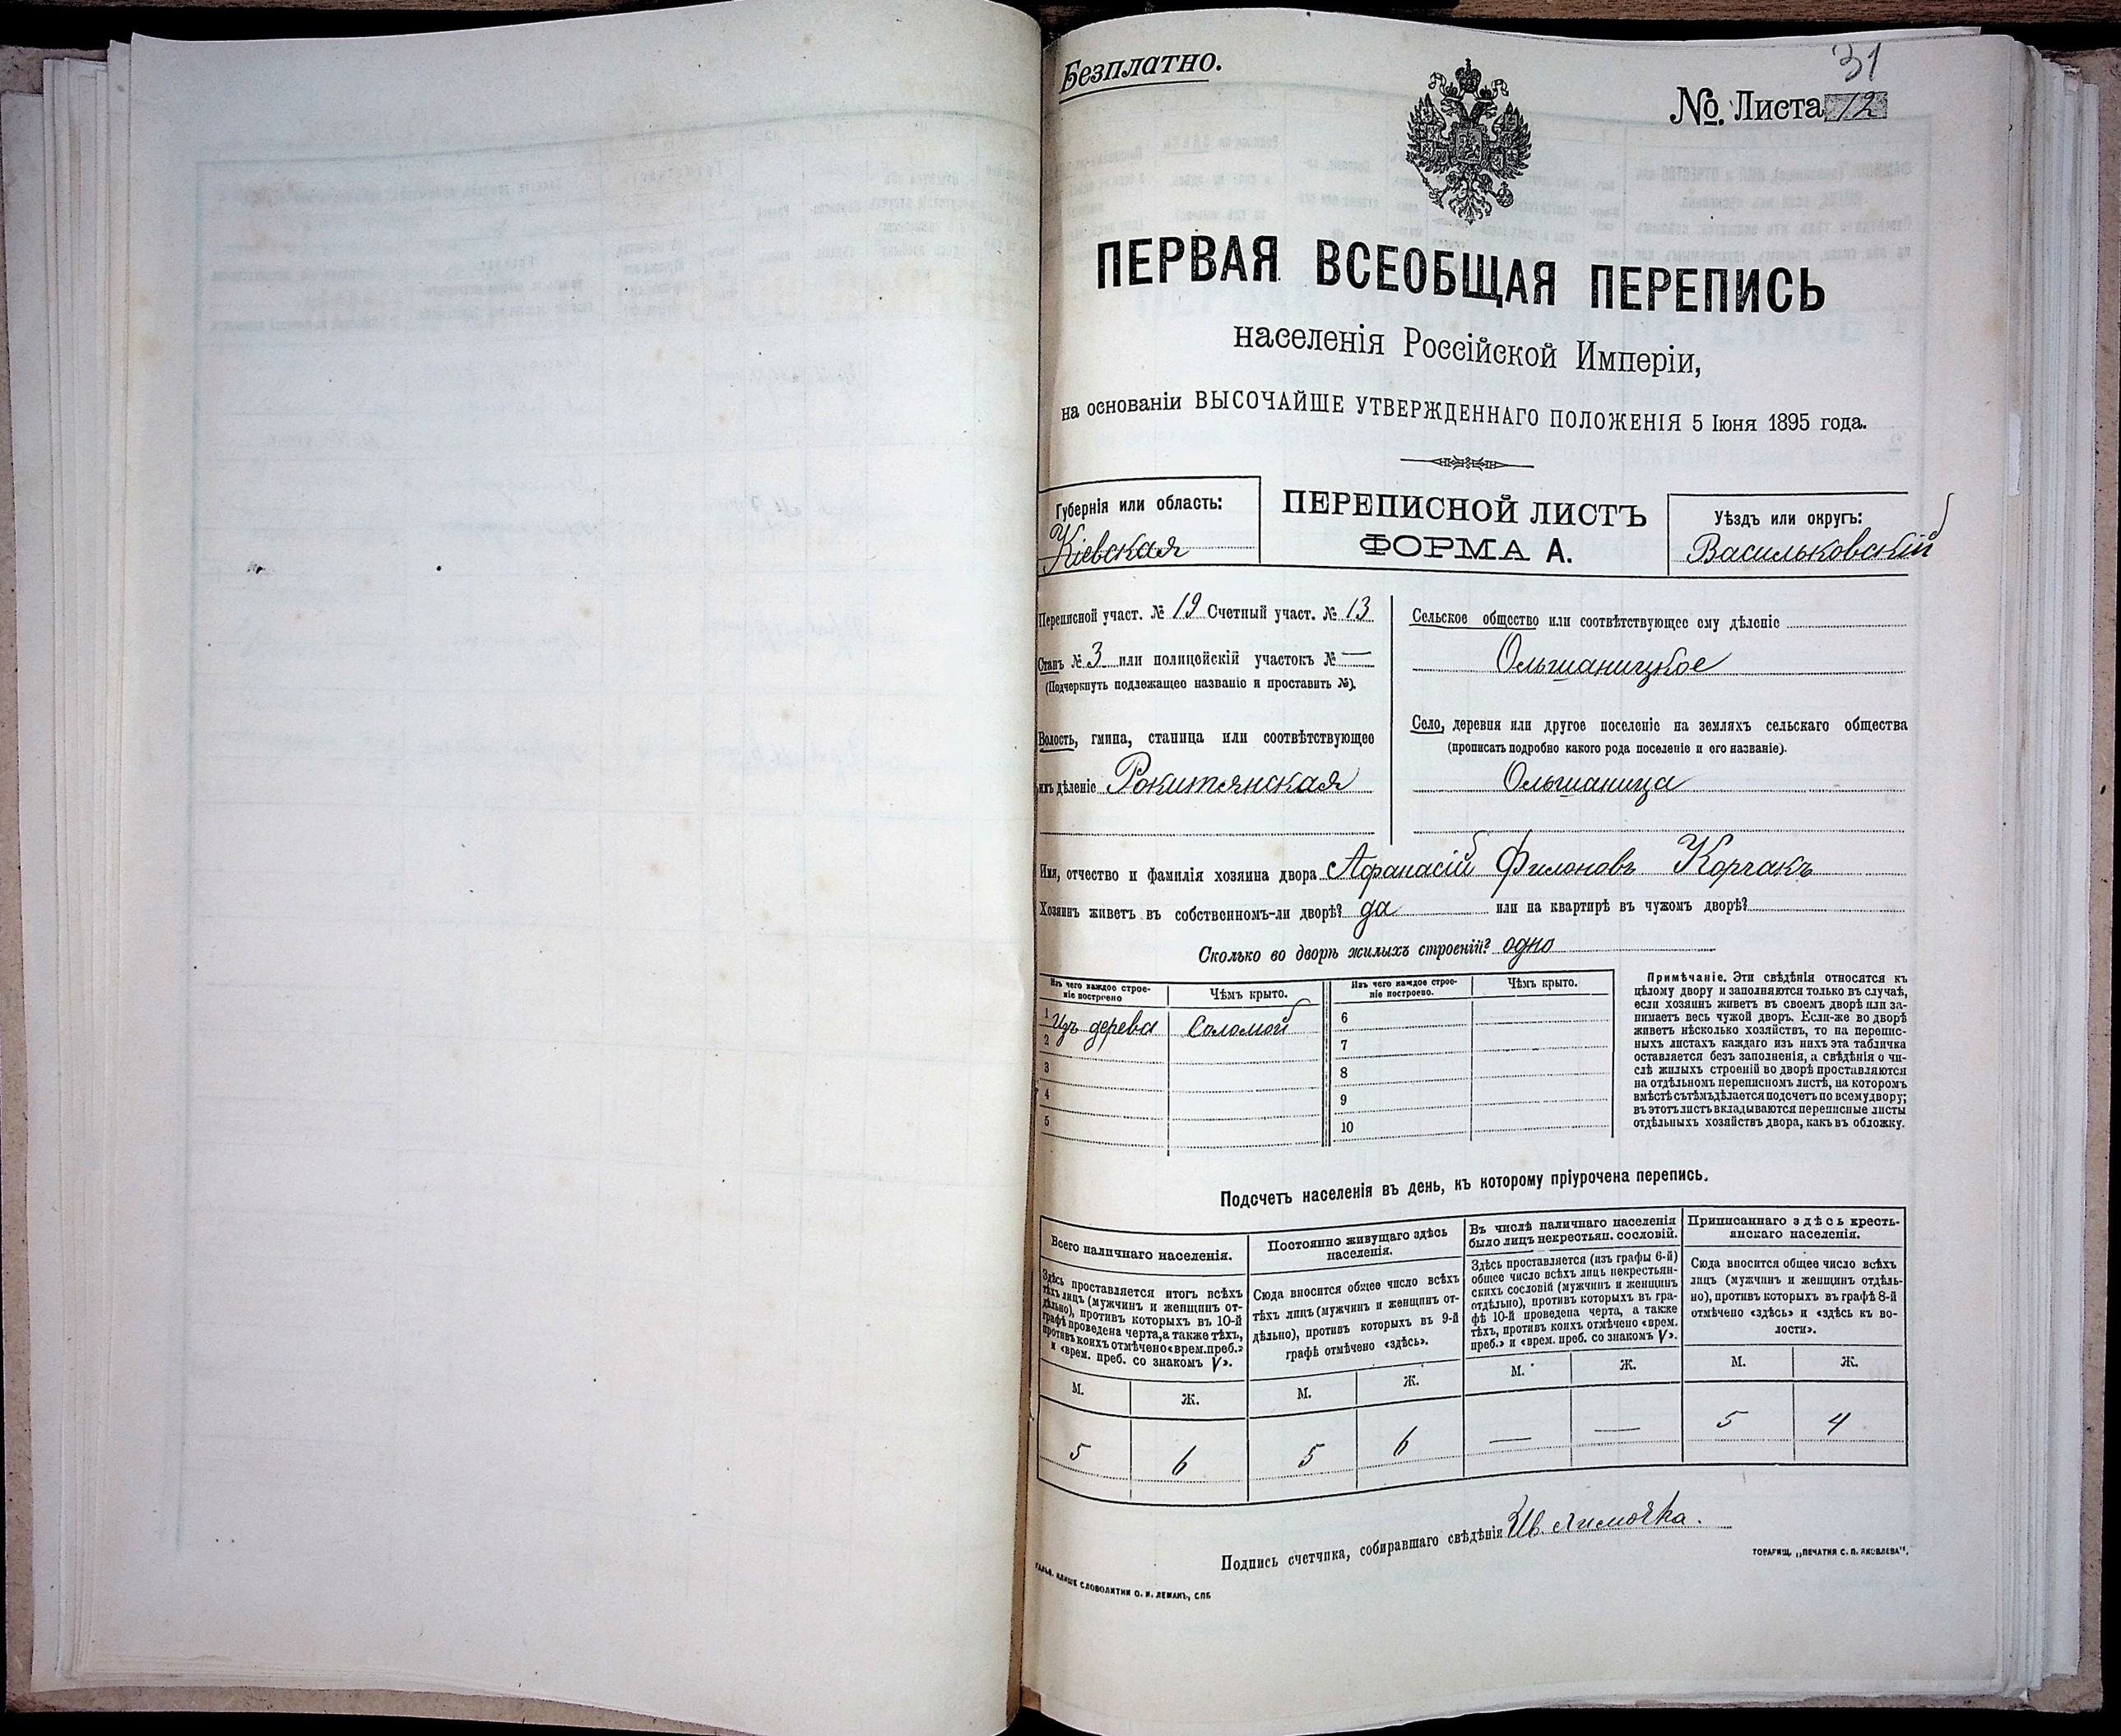 Безплатно.
31
№. Листа 12
ПЕРВАЯ ВСЕОБЩАЯ ПЕРЕПИСЬ
населенія Россійской Имперіи,
на основаніи ВЫСОЧАЙШЕ УТВЕРЖДЕННАГО ПОЛОЖЕНІЯ 5 Іюня 1895 года.
Губернія или область:
Кіевская
ПЕРЕПИСНОЙ ЛИСТЪ
ФОРМА А.
Уѣздъ или округъ:
Васильковскій
Переписной участ. № 19 Счетный участ. № 13
Станъ № 3 или полицейскій участокъ № —
(Подчеркнуть подлежащее названіе и проставить №).
Волость, гмина, станица или соотвѣтствующее
имъ дѣленіе Рокитянская
Сельское общество или соотвѣтствующее ему дѣленіе
Ольшаницкое
Село, деревня или другое поселеніе на земляхъ сельскаго общества
(прописать подробно какого рода поселеніе и его названіе).
Ольшаница
Имя, отчество и фамилія хозяина двора Афанасій Филоновъ Корчакъ
Хозяинъ живетъ въ собственномъ-ли дворѣ? да или на квартирѣ въ чужомъ дворѣ?
Сколько во дворѣ жилыхъ строеній? одно
Изъ чего каждое строе-
ніе построено
Чѣмъ крыто.
1 Изъ дерева Соломой
2
3
4
5
Изъ чего каждое строе-
ніе построено.
Чѣмъ крыто.
6
7
8
9
10
Примѣчаніе. Эти свѣдѣнія относятся къ
цѣлому двору и заполняются только въ случаѣ,
если хозяинъ живетъ въ своемъ дворѣ или за-
нимаетъ весь чужой дворъ. Если-же во дворѣ
живетъ нѣсколько хозяйствъ, то на перепис-
ныхъ листахъ каждаго изъ нихъ эта табличка
оставляется безъ заполненія, а свѣдѣнія о чи-
слѣ жилыхъ строеній во дворѣ проставляются
на отдѣльномъ переписномъ листѣ, на которомъ
вмѣстѣ съ тѣмъ дѣлается подсчетъ по всему двору;
въ этотъ листъ вкладываются переписные листы
отдѣльныхъ хозяйствъ двора, какъ въ обложку.
Подсчетъ населенія въ день, къ которому пріурочена перепись.
Всего наличнаго населенія.
Здѣсь проставляется итогъ всѣхъ
тѣхъ лицъ (мужчинъ и женщинъ от-
дѣльно), противъ которыхъ въ 10-й
графѣ проведена черта, а также тѣхъ,
противъ коихъ отмѣчено «врем. преб.»
и «врем. преб. со знакомъ V».
М. Ж.
5 6
Постоянно живущаго здѣсь
населенія.
Сюда вносится общее число всѣхъ
тѣхъ лицъ (мужчинъ и женщинъ от-
дѣльно), противъ которыхъ въ 9-й
графѣ отмѣчено «здѣсь».
М. Ж.
5 6
Въ числѣ наличнаго населенія
было лицъ некрестьян. сословій.
Здѣсь проставляется (изъ графы 6-й)
общее число всѣхъ лицъ некрестьян-
скихъ сословій (мужчинъ и женщинъ
отдѣльно), противъ которыхъ въ гра-
фѣ 10-й проведена черта, а также
тѣхъ, противъ коихъ отмѣчено «врем.
преб.» и «врем. преб. со знакомъ V».
М. Ж.
— —
Приписаннаго здѣсь кресть-
янскаго населенія.
Сюда вносится общее число всѣхъ
лицъ (мужчинъ и женщинъ отдѣль-
но), противъ которыхъ въ графѣ 8-й
отмѣчено «здѣсь» и «здѣсь къ во-
лости».
М. Ж.
5 4
Подпись счетчика, собиравшаго свѣдѣнія Ив.
ГАЛЬВ. КЛИШЕ СЛОВОЛИТНИ О. И. ЛЕМАНЪ, СПБ
ТОВАРИЩ. „ПЕЧАТНЯ С. П. ЯКОВЛЕВА".